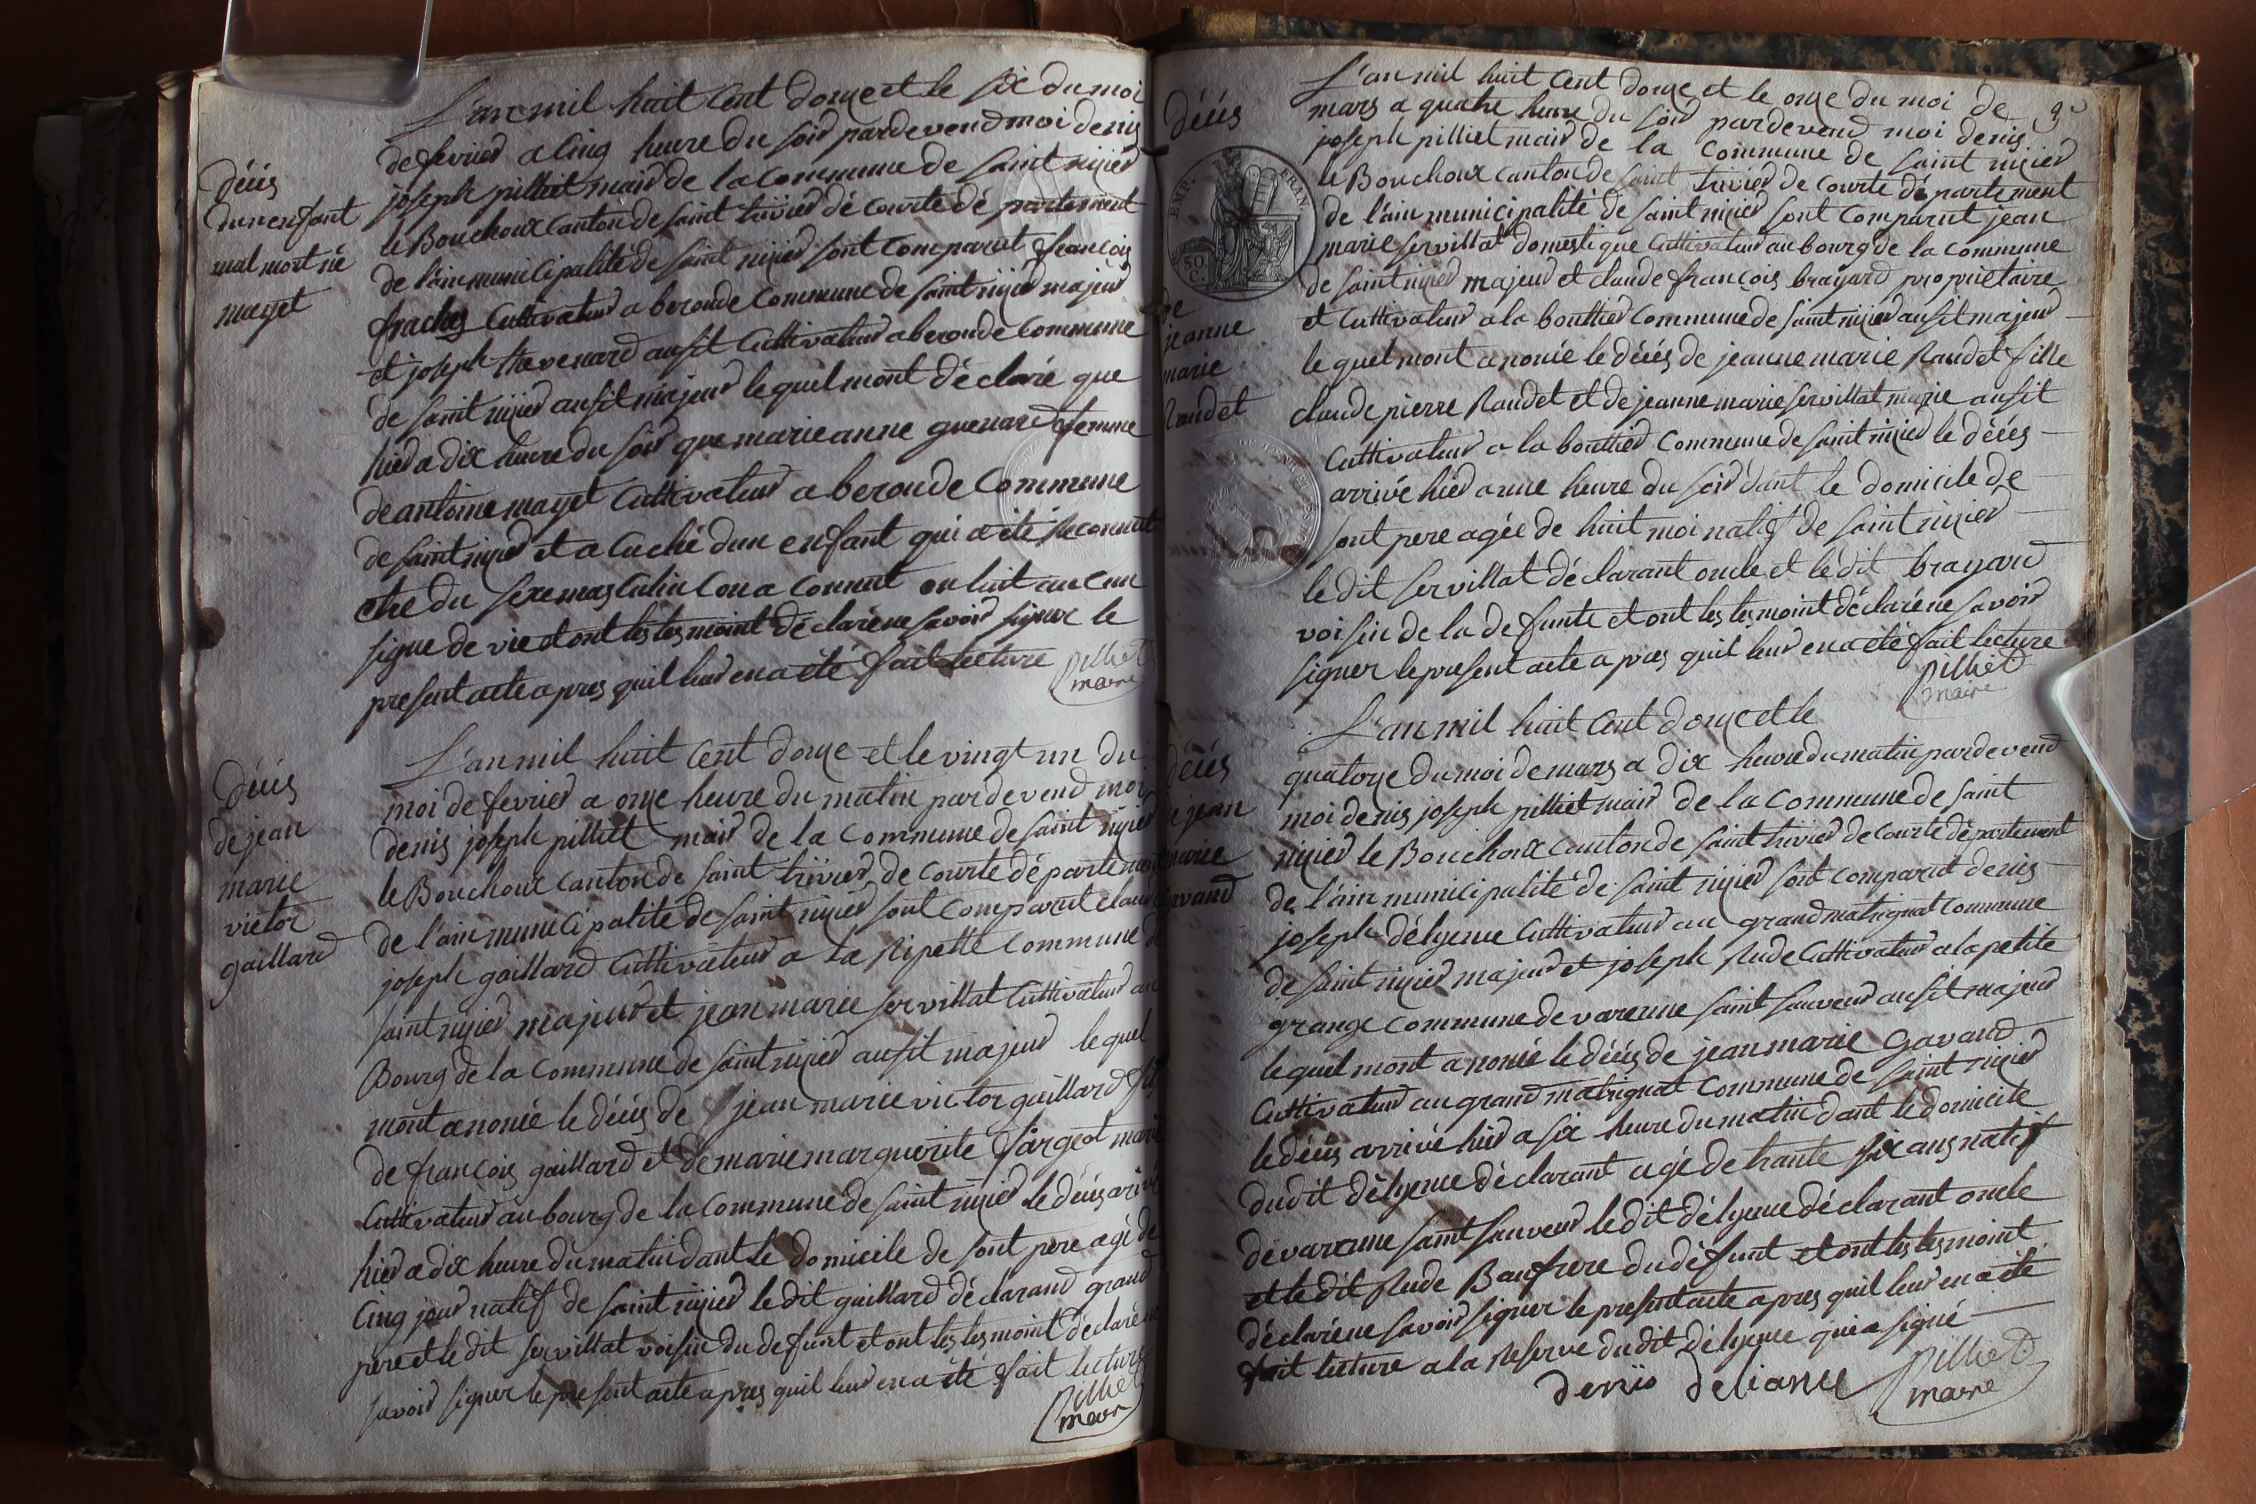 décés
dun enfant
mal mort né
mayet
L'an mil huit Cent douze et le six du moi
de fevrier a Cinq heure du soir pardevend moi denis
joseph pilliet mair de la Commune de saint nizier
le Bouchoux canton de saint trivier de Courte dé partement
de l'ain municipalité de saint nizier sont Comparut françois
Cultivateur a beroude Commune de saint nizier majeur
et joseph thevenard ausit Cultivateur a beroude Commune
de saint nizier ausit majeur lequel mont déclaré que
hier a dix heure du soir que marie anne guenard femme
de antoine mayet Cultivateur a beroude Commune
de saint nizier et a Cuché dun enfant qui a été Reconnut
etre du sexe masCulin Lon a Connut en luit au Cun
signe de vie et ont les tesmoint déclaré ne savoir signer le
present acte apres quil leur en a été fait lecture
pilliet
maire
décés
de jean
marie
victor
gaillard
L'an mil huit Cent douze et le vingt un du
moi de fevrier a onze heure du matin pardevend moi
denis joseph pilliet mair de la Commune de saint nizier
le Bouchoux Canton de saint trivier de Courte département
de l'ain municipalité de saint nizier sont Comparut claude
joseph gaillard Cultivateur a La Ripette Commune de
saint nizier majeur et jean marie servillat Cultivateur au
Bourg de la Commune de saint nizier ausit majeur lequel
mont anoncé le décés de jean marie victor gaillard fils
de françois gaillard et de marie marguerite fargeot marié
Cultivateur au bourg de la Commune de saint nizier le décés arivé
hier a dix heure du matin dant le domicile de sont pere agé de
Cinq jour natif de saint nizier le dit gaillard déclarand grand
pere et le dit servillat voisin du defunt et ont les tesmoint déclaré ne
savoir signer le present acte apres quil leur en a été fait lecture
pilliet
mair
décés
de
jeanne
marie
Raudet
EMP. FRAN.
50
C.
L'an mil huit Cent douze et le onze du moi de
mars a quatre heure du soir pardevend moi denis
joseph pilliet mair de la Commune de saint nizier
le Bouchoux canton de saint trivier de Courte département
de l'ain municipalité de saint nizier sont Comparut jean
marie servillat domestique Cultivateur au bourg de la Commune
de saint nizier majeur et claude françois brayard proprietaire
et Cultivateur a la bouttier Commune de saint nizier ausit majeur
lequel mont anoncé le décés de jeanne marie Raudet fille
claude pierre Raudet et de jeanne marie servillat marie ausit
Cultivateur a la bouttier Commune de saint nizier le décés
arrivé hier a une heure du soir dant le domicile de
sont pere agée de huit moi natif de saint nizier
le dit servillat déclarant oncle et le dit brayard
voisin de la defunte et ont les tesmoint déclaré ne savoir
signer le present acte apres quil leur en a été fait lecture
pilliet
maire
décés
de jean
marie
gavand
L'an mil huit Cent douze et le
quatorze du moi de mars a dix heure du matin pardevend
moi denis joseph pilliet mair de la Commune de saint
nizier le Bouchoux Canton de saint trivier de Courte département
de l'ain municipalité de saint nizier sont Comparut denis
joseph délyenue Cultivateur au grand matrignat Commune
de saint nizier majeur et joseph Rude Cultivateur a la petite
grange Commune de varenne saint sauveur ausit majeur
lequel mont anoncé le décés de jean marie gavand
Cultivateur au grand matrignat Commune de saint nizier
le décés arrivé hier a six heure du matin dant le domicile
dudit délyenue déclarant agé de trante six ans natif
de varenne saint sauveur le dit délyenue déclarant oncle
et le dit Rude Baufrere du défunt et ont les tesmoint
déclaré ne savoir signer le present acte apres quil leur en a été
fait lecture a la Reserve du dit délyenue qui a signé
denis pilliet
maire